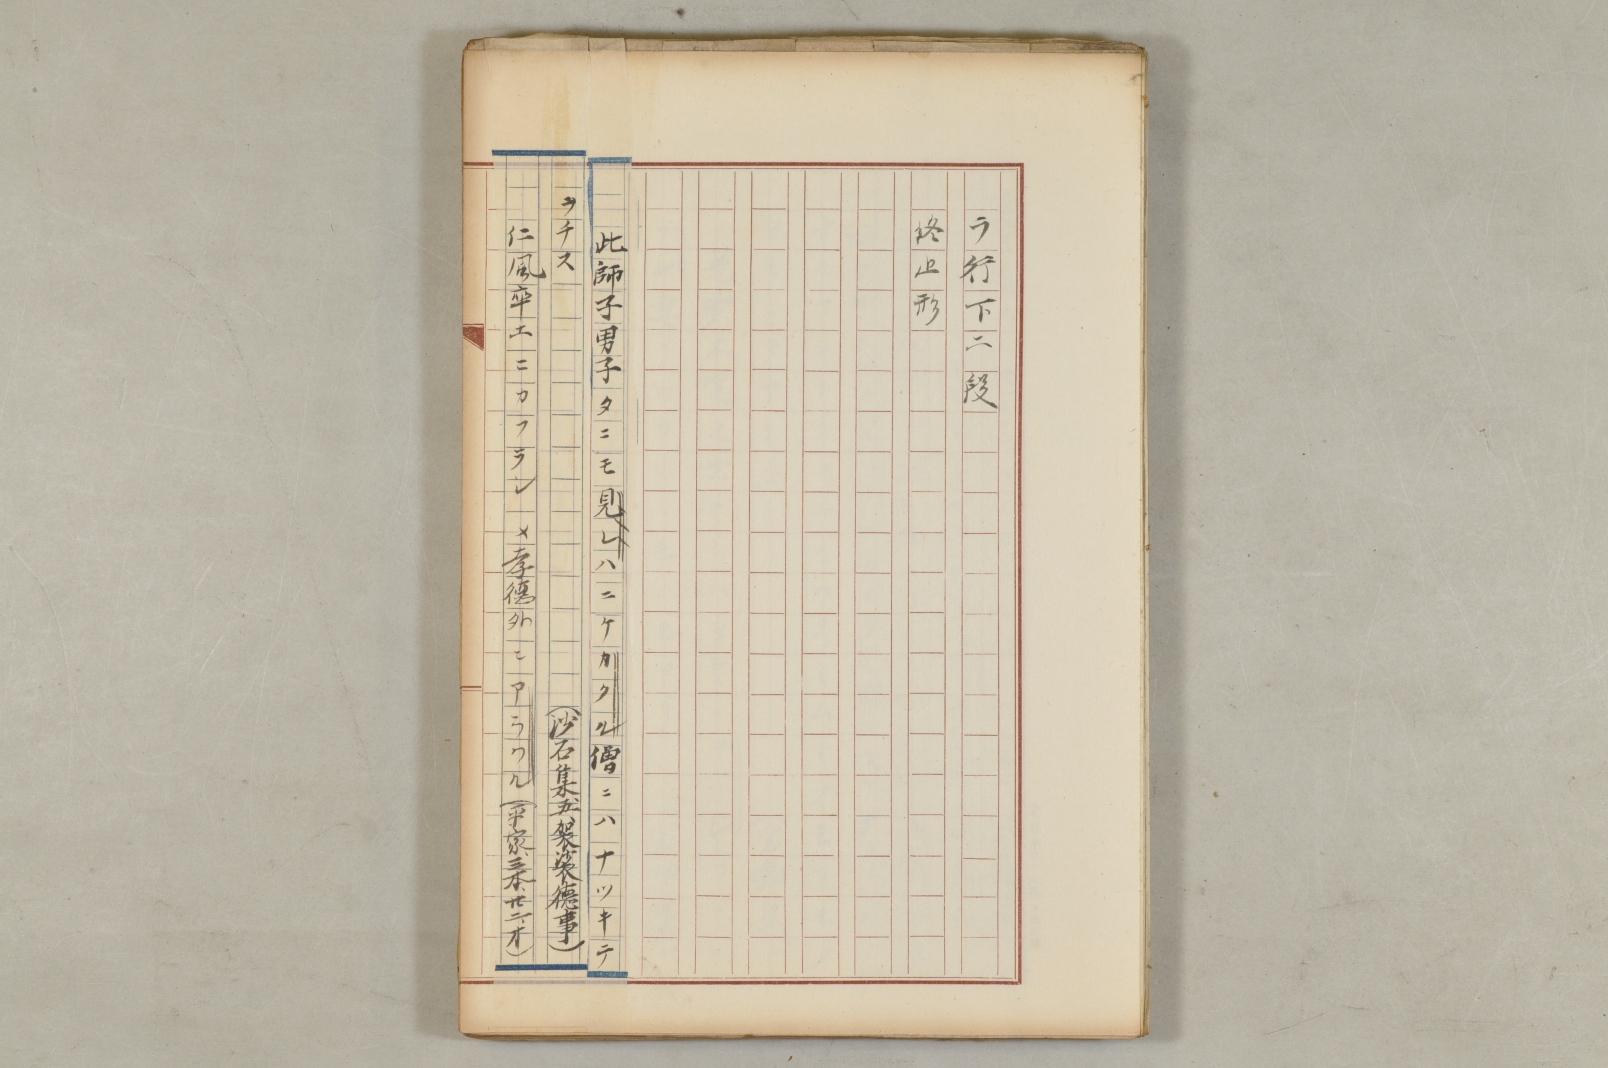 ラ行下二段
終止形
此師子男子タニモ見レハニケカクル僧ニハナツキテ
ヲチス
(沙石集五、袈裟德事)
仁風卒土ニカフラシメ孝德外ニアラワル(平家、三本、廿二オ)